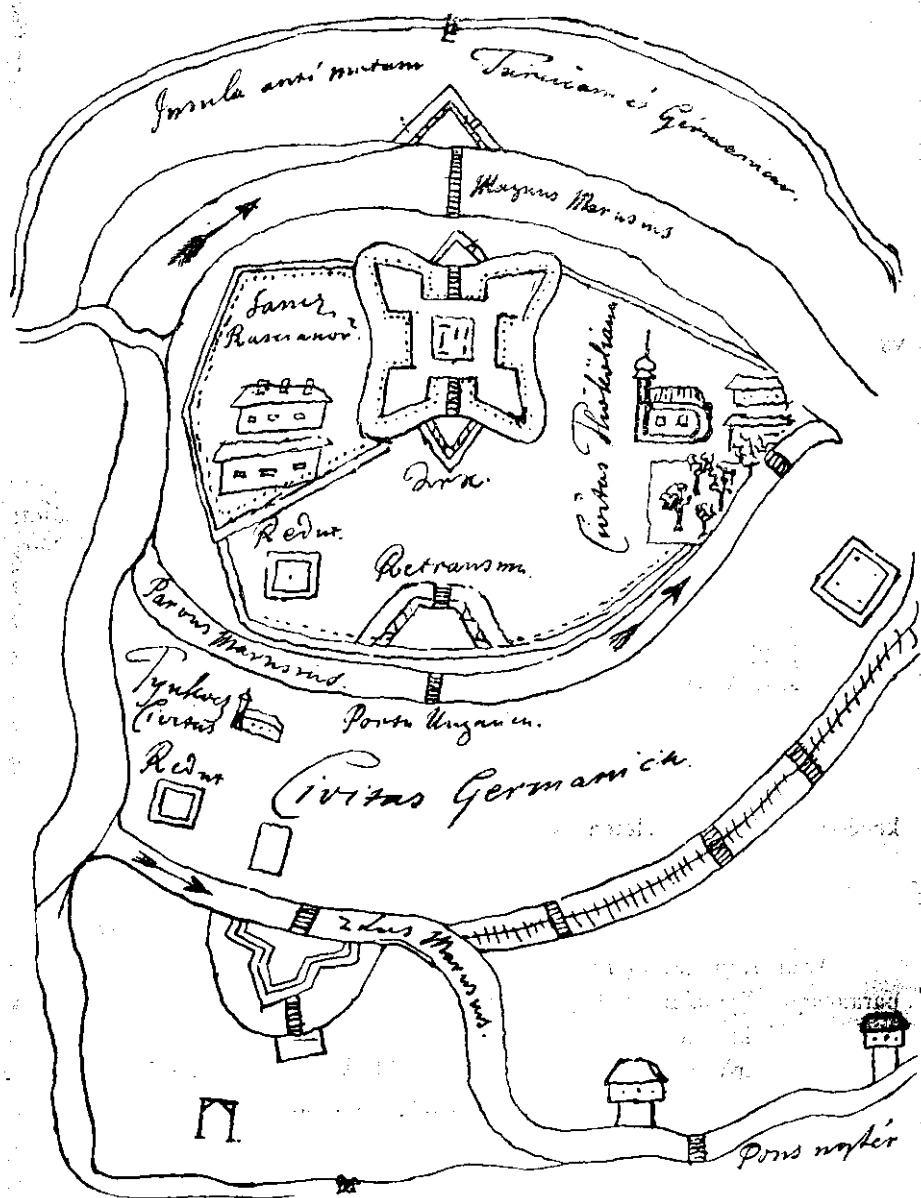 Insula antó metam Turcicam és Germanicam.
Magnus Marusius
Sancz
Rascianor.
Civitas Thököliana
Arx.
Redut.
Retransm.
Parvus Marusius.
Porta Ungarica.
Civitas
Redut
Civitas Germanica.
2dus Marusius.
Pons noster